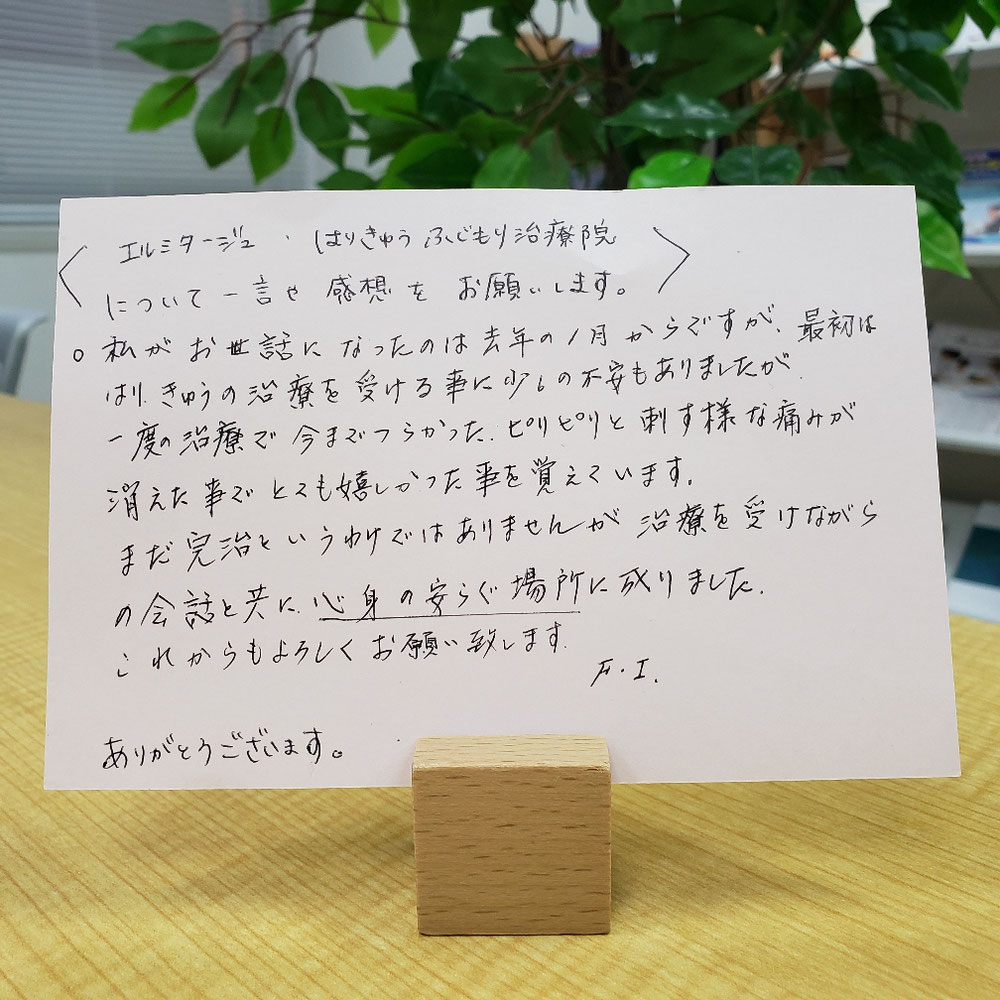 〈 エルミタージュ・はりきゅう ふじもり治療院
について一言や 感想を お願いします。 〉
○ 私が お世話に なったのは 去年の1月からですが、最初は
はり、きゅうの治療を受ける事に少しの不安もありましたが、
一度の治療で 今までつらかった、ピリピリと刺す様な痛みが
消えた事でとても嬉しかった事を覚えています。
まだ完治というわけではありませんが 治療を受けながら
の会話と共に、心身の安らぐ場所に成りました。
これからもよろしくお願い致します。
F・I.
ありがとうございます。